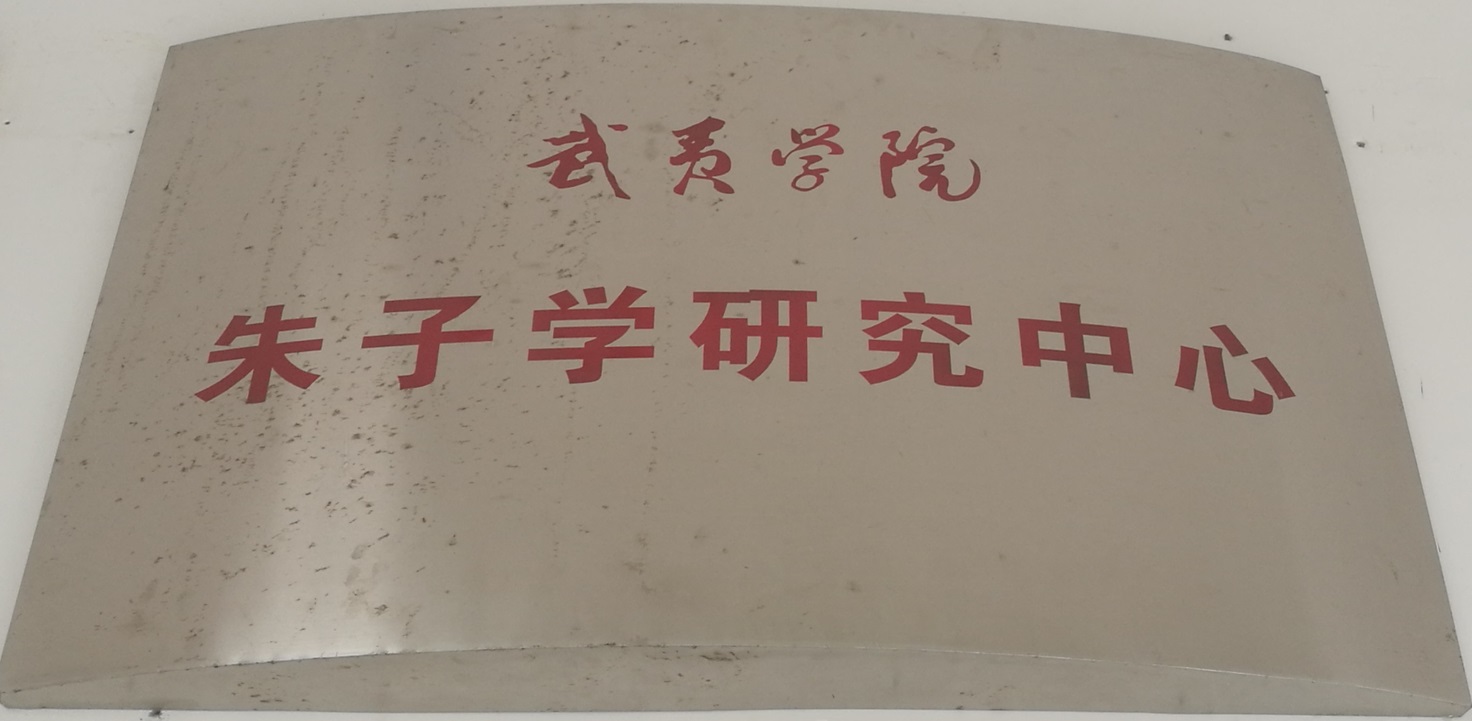 武夷学院
朱子学研究中心